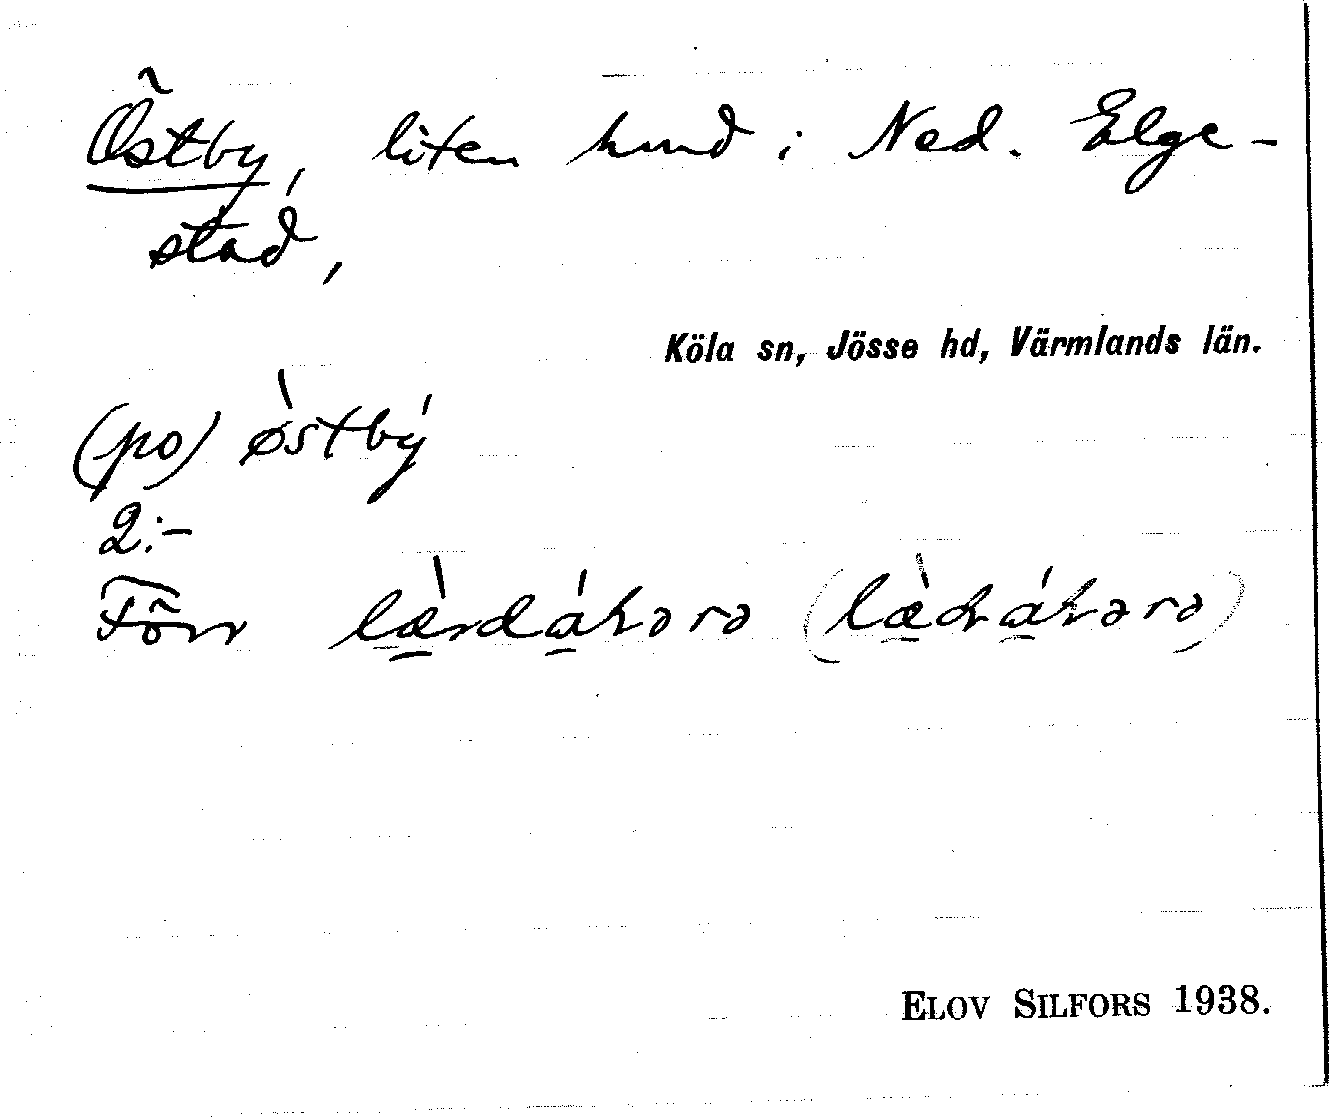 Östby, liten hmd i Ned. Elge-
stad,
Köla sn, Jösse hd, Värmlands län.
(po) ø̀stbý
2:-
Förr læ̀rdákərə (læ̀drákərə)
ELOV SILFORS 1938.